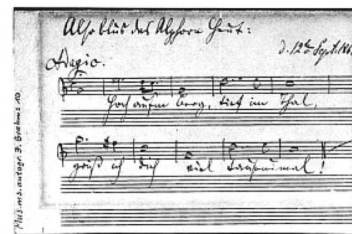 Also blus das Alphorn heut:
d. 12t Sept.
Adagio.
Hoch aufm Berg, tief im Thal,
grüß ich dich viel tausendmal!
Mus. ms. autogr. J. Brahms 10.